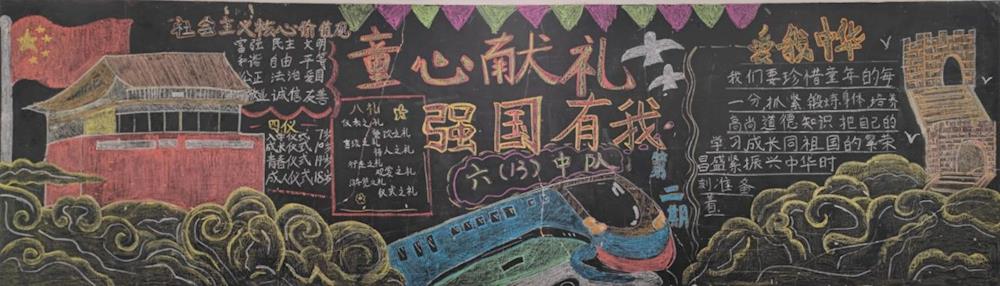 社会主义核心价值观
富强 民主 文明
和谐 自由 平等
公正 法治 爱国
敬业 诚信 友善
四仪
入学仪式 7岁
成长仪式 10岁
青春仪式 14岁
成人仪式 18岁
八礼
仪表之礼
餐饮之礼
言谈之礼
待人之礼
行走之礼
观赏之礼
游览之礼
仪式之礼
童心献礼
强国有我
六(13)中队
第二期
爱我中华
我们要珍惜童年的每
一分,抓紧锻持身体 培养
高尚道德知识 把自己的
学习成长同祖国的繁荣
昌盛紧振兴中华时
刻准备
着